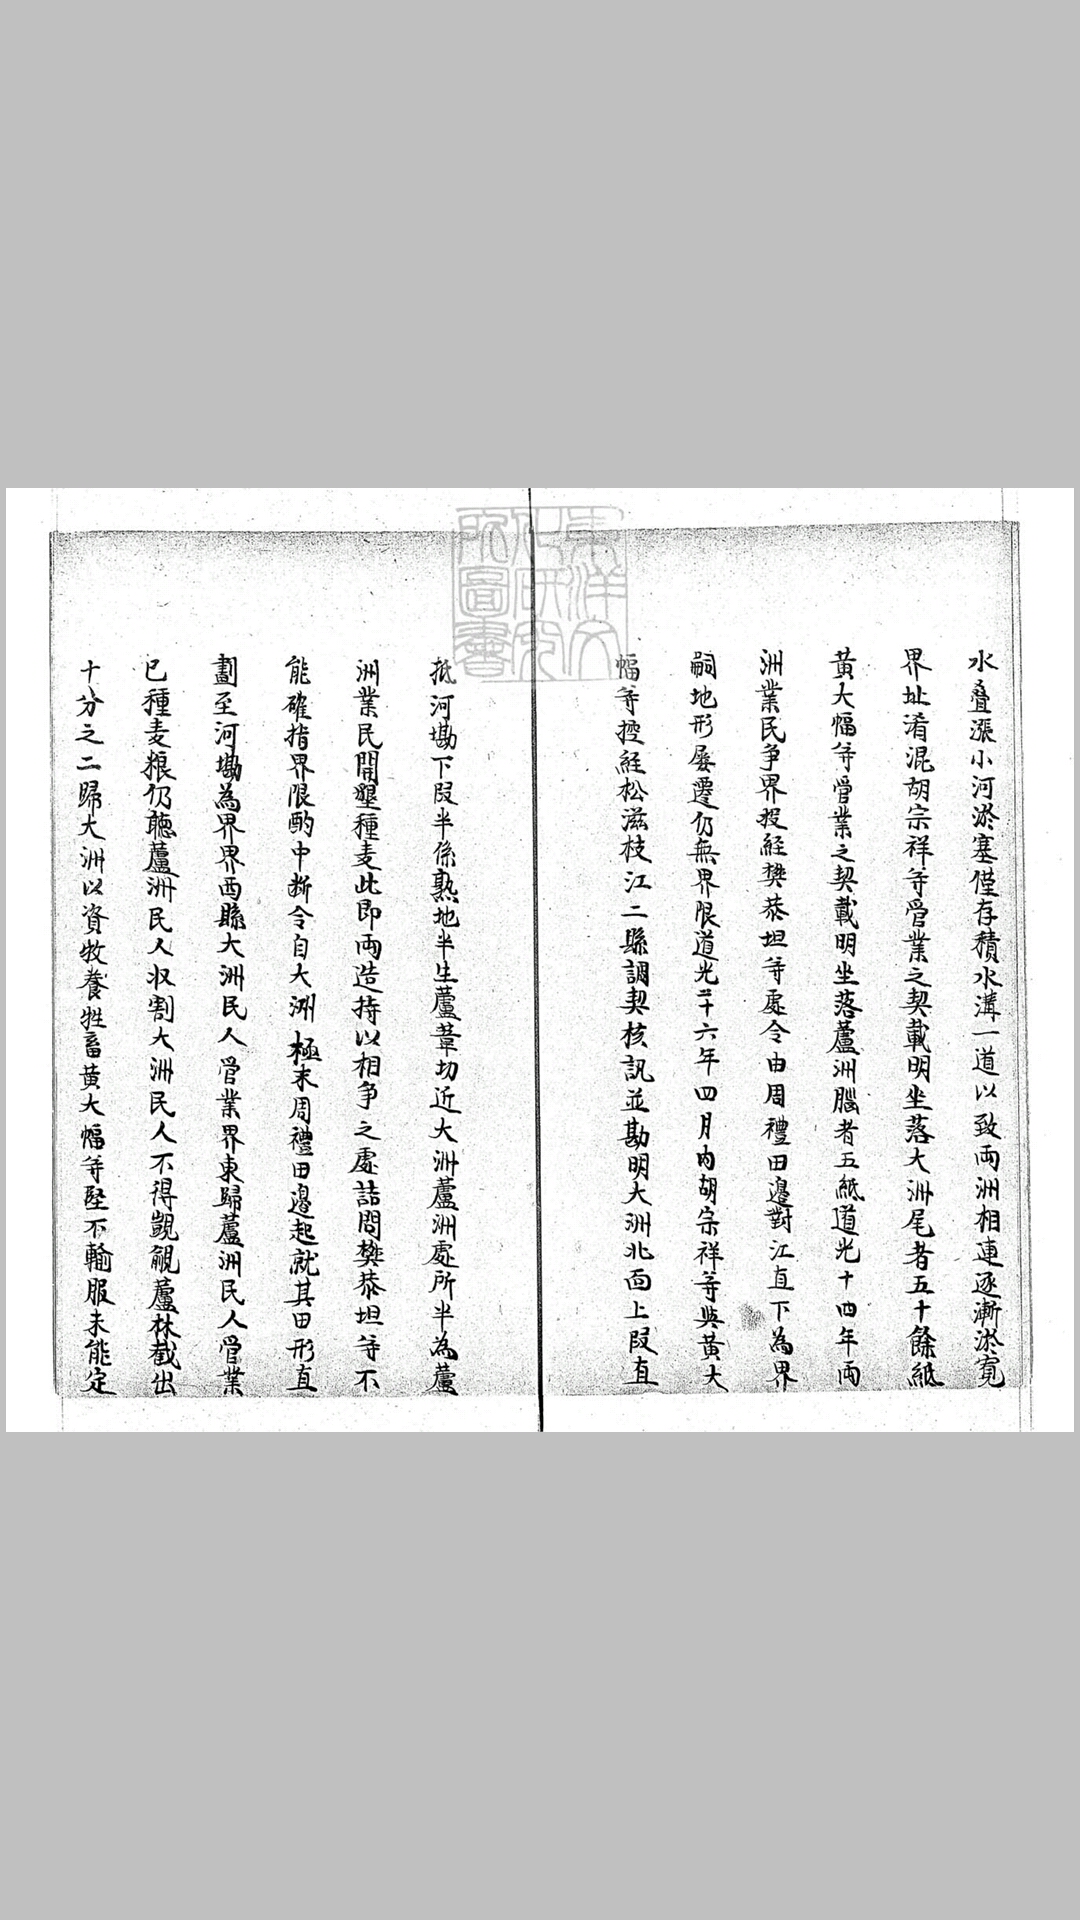 水疊漲小河淤塞僅存積水溝一道以致両洲相連逐漸淤寬
界址淆混胡宗祥等管業之契載明坐落大洲尾者五十餘紙
黃大幅等管業之契載明坐落蘆洲腦者五紙道光十四年両
洲業民爭界投経樊恭坦等處令由周禮田邊對江直下為界
嗣地形屡遷仍無界限道光二十六年四月内胡宗祥等與黃大
幅等控経松滋枝江二縣調契核訊並勘明大洲北面上段直
抵河塝下段半係熟地半生蘆葦切近大洲蘆洲處所半為蘆
洲業民開墾種麦此即両造持以相爭之處詰問樊恭坦等不
能確指界限酌中断令自大洲極末周禮田邊起就其田形直
劃至河塝為界界西縣大洲民人管業界東歸蘆洲民人管業
已種麦粮仍聴蘆洲民人収割大洲民人不得覬覦蘆林截出
十分之二歸大洲以資牧養牲畜黃大幅等堅不輸服未能定
東洋文
化研究
所圖書